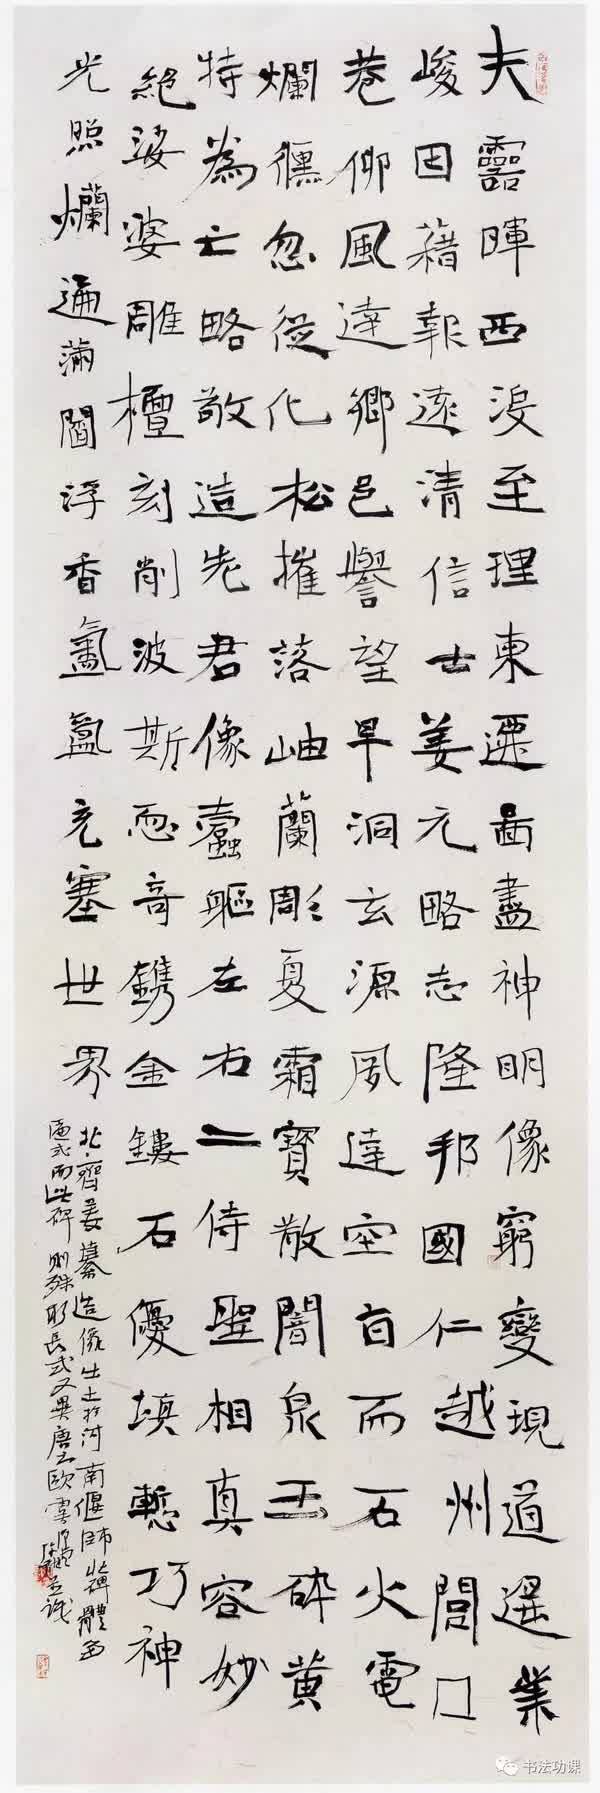 夫靈暉西沒至理東遷啚盡神明像窮變現道遥業
峻因藉報遠清信士姜元略志隆邦國仁越州閭口
巷仰風達鄉邑譽望早洞玄源夙達空旨而石火電
爛儵忽從化松摧落岫蘭彫夏霜寶散闇泉玉碎黄
特為亡略敬造先君像壹軀左右二侍聖相真容妙
絕娑婆雕檀刻削波斯恧奇鐫金鏤石優填慙巧神
光照爛遍滿閻浮香氣氳氳充塞世界
北齊姜纂造像出土於河南偃師碑體多
匾式而此碑則殊形長式又異唐之歐虞
書法功课